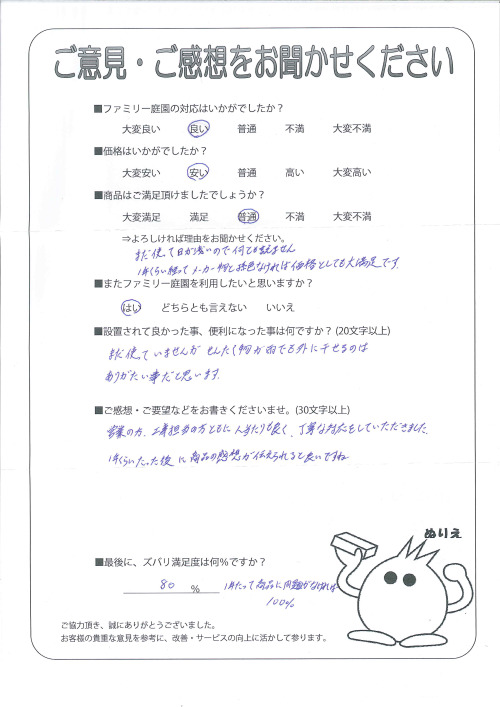 ご意見・ご感想をお聞かせください
■ファミリー庭園の対応はいかがでしたか？
大変良い 良い 普通 不満 大変不満
■価格はいかがでしたか？
大変安い 安い 普通 高い 大変高い
■商品はご満足頂けましたでしょうか？
大変満足 満足 普通 不満 大変不満
⇒よろしければ理由をお聞かせください。
まだ使って日が浅いので何とも言えません
1年くらい経ってメーカー物と遜色なければ価格としても大満足です
■またファミリー庭園を利用したいと思いますか？
はい どちらとも言えない いいえ
■設置されて良かった事、便利になった事は何ですか？ (20文字以上)
まだ使っていませんが せんたく物が雨でも外に干せるのは
ありがたい事だと思います
■ご感想・ご要望などをお書きくださいませ。(30文字以上)
営業の方、工事担当の方ともに人当たりも良く、丁寧な対応をしていただきました。
1年くらいたった後に商品の感想が伝えられると良いですね
ぬりえ
■最後に、ズバリ満足度は何％ですか？
80 ％ 1年たって商品に問題がなければ
100％
ご協力頂き、誠にありがとうございました。
お客様の貴重な意見を参考に、改善・サービスの向上に活かして参ります。